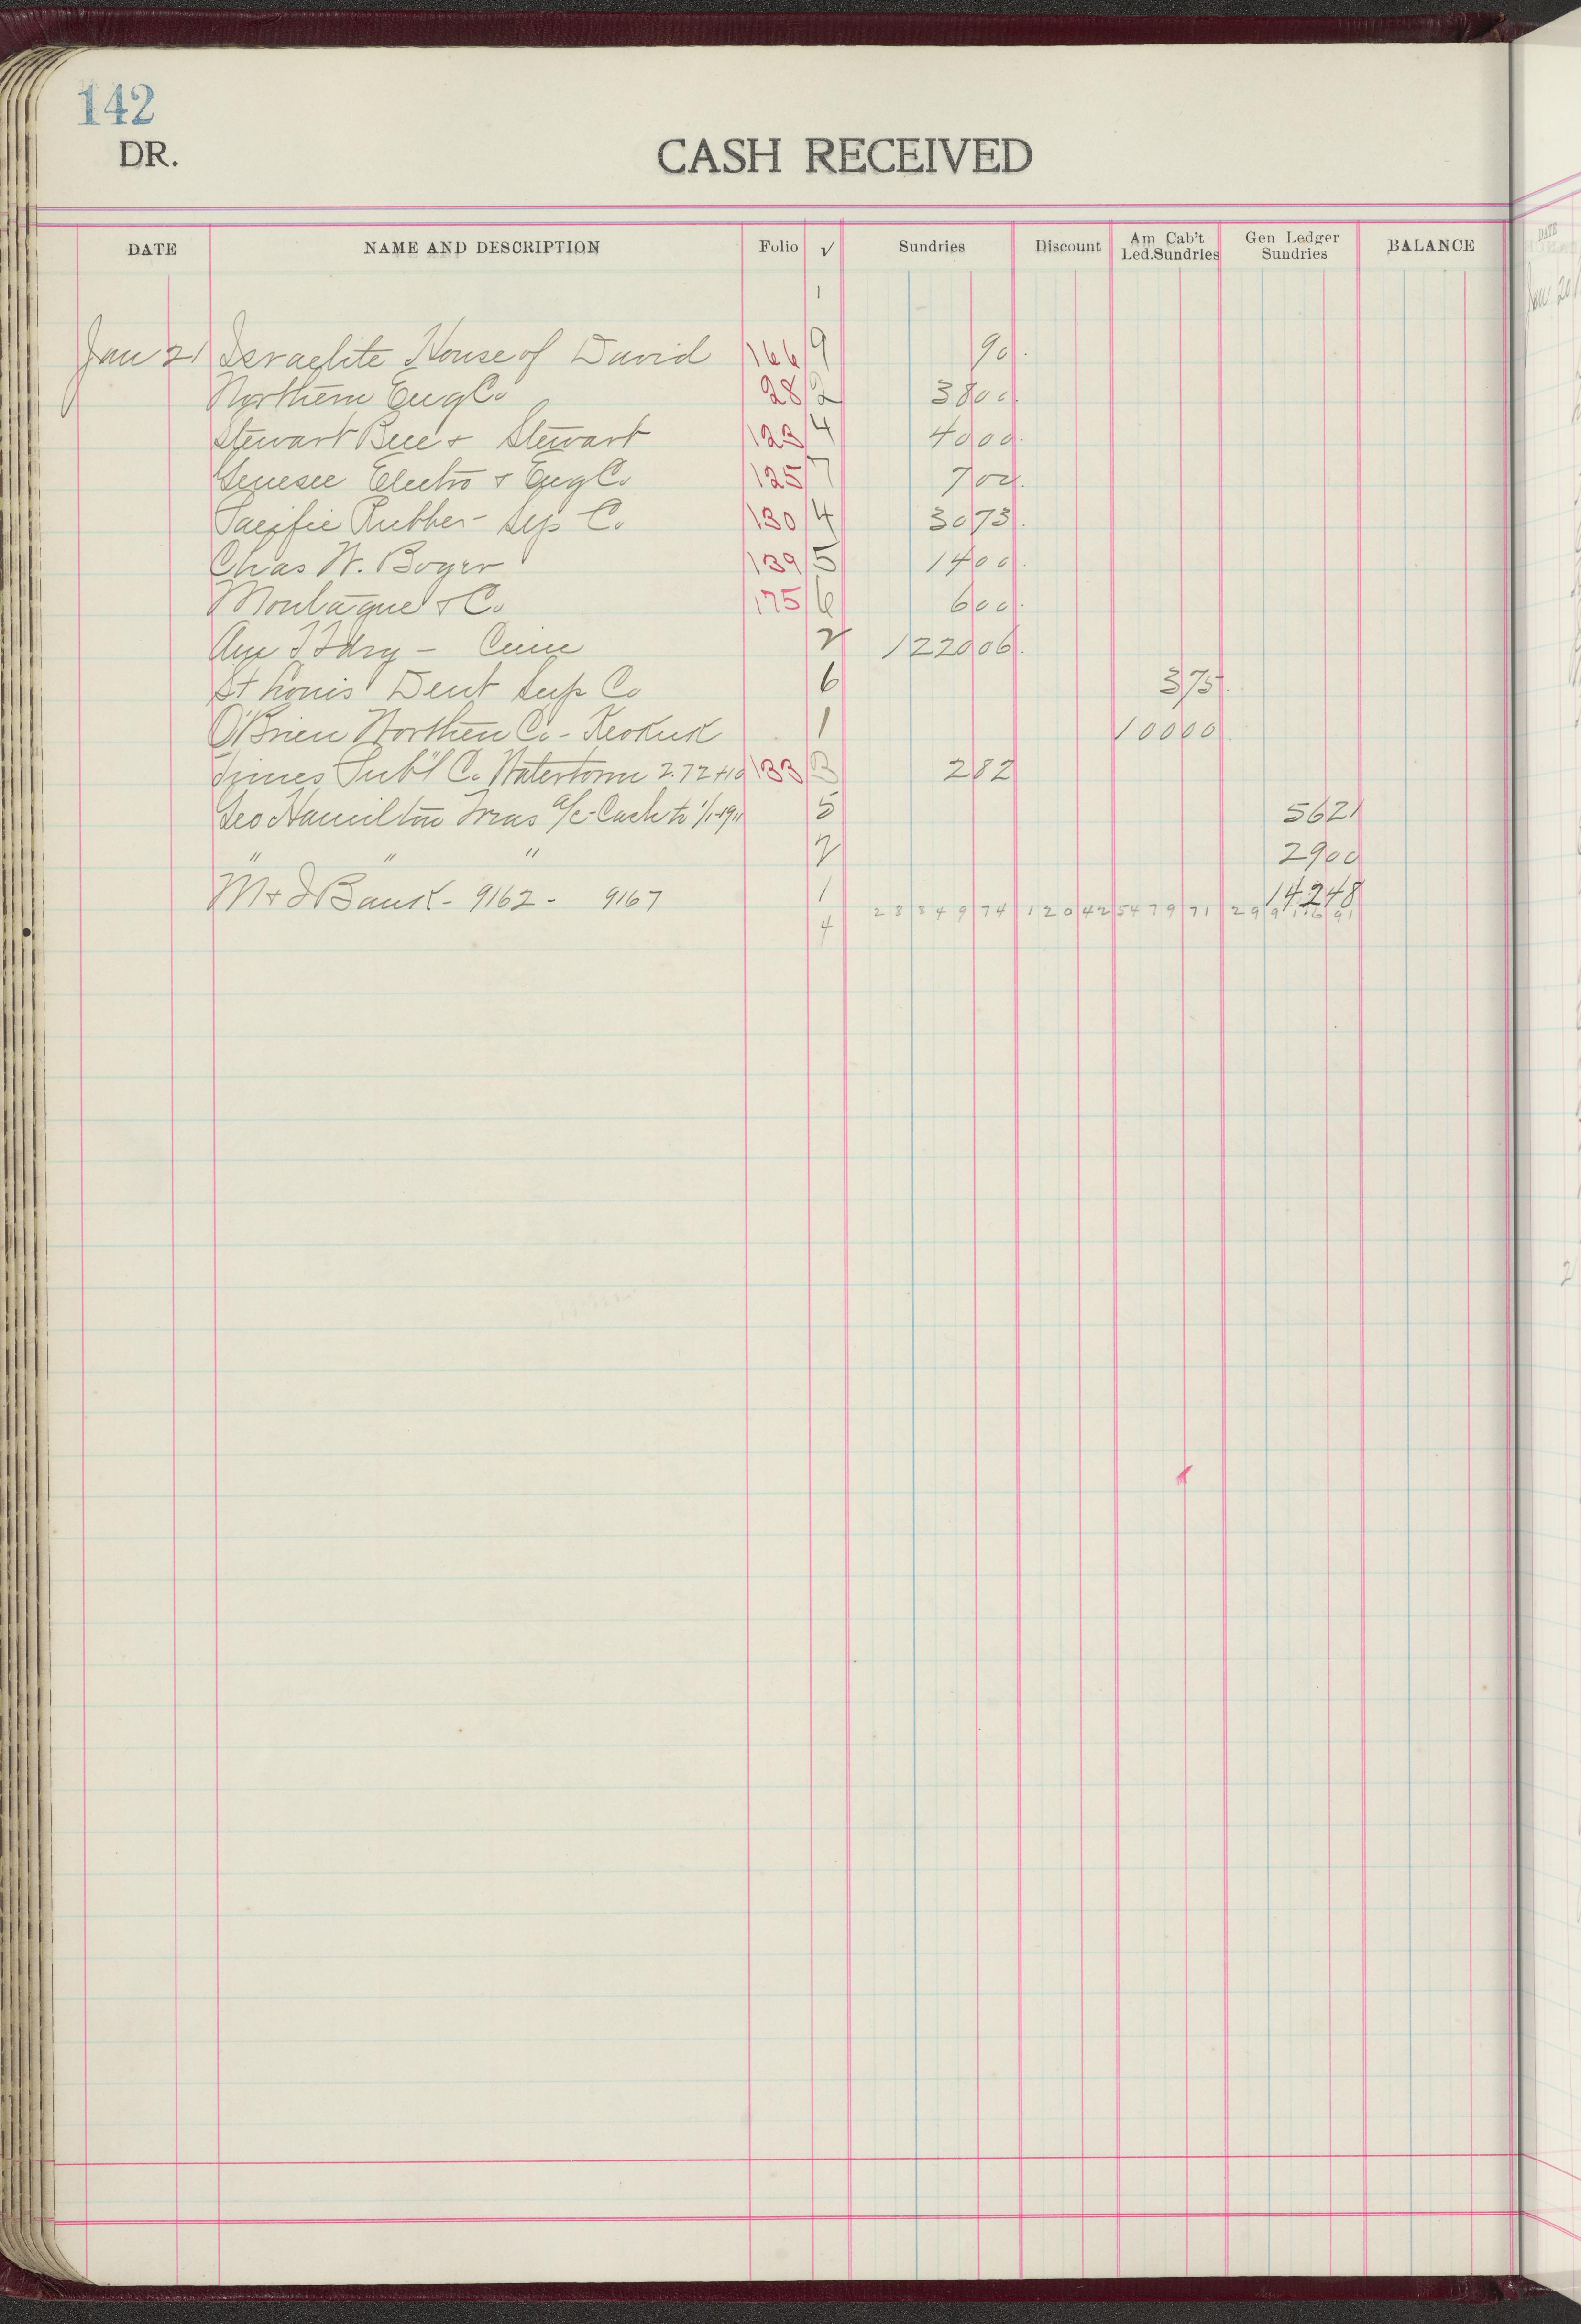 142
DR.
CASH RECEIVED
DATE NAME AND DESCRIPTION Folio √ Sundries Discount Am Cab't Led.Sundries Gen Ledger Sundries BALANCE
1
Jan 21 Israelite House of David 166 9 90
Northern Eng Co 28 2 3800
Stewart Bee & Stewart 123 4 4000
Genesee Electro & Eng Co 125 7 700
Pacific Rubber - Sup Co 130 4 3073
Chas W. Boyer 139 5 1400
Montague & Co 175 6 600
Am T Fdry - Cinn 2 122006
St Louis Dent Sup Co 6 375
O'Brien Worthen Co - Keokuk 1 10000
Times Pub'l Co Watertown 2.72+10 133 3 282
Geo Hamilton Treas a/c - Cash to 1/1-1911 5 5621
" " " 2 2900
M & I Bank - 9162 - 9167 1 14248
4 2 8 3 4 9 74 1 2 0 42 54 79 71 29 9 1 6 91